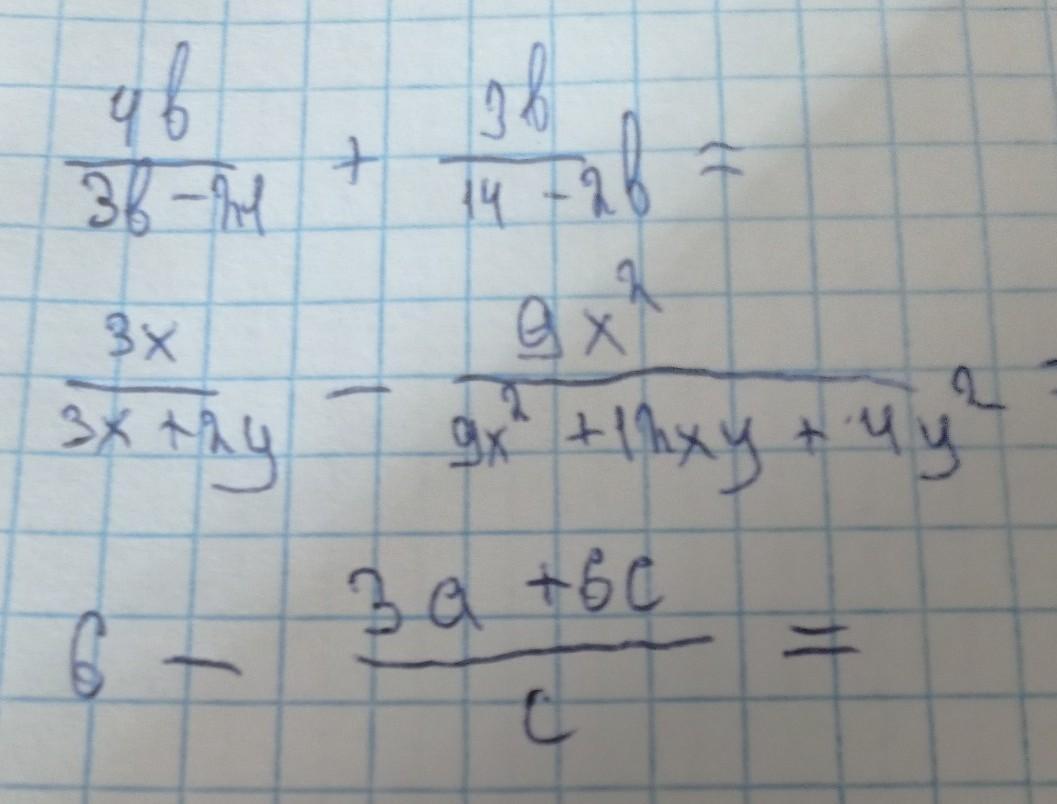 4b/(3b-21) + 3b/(14-2b) =
3x/(3x+2y) - 9x²/(9x²+12xy+4y²) =
6 - (3a+6c)/c =